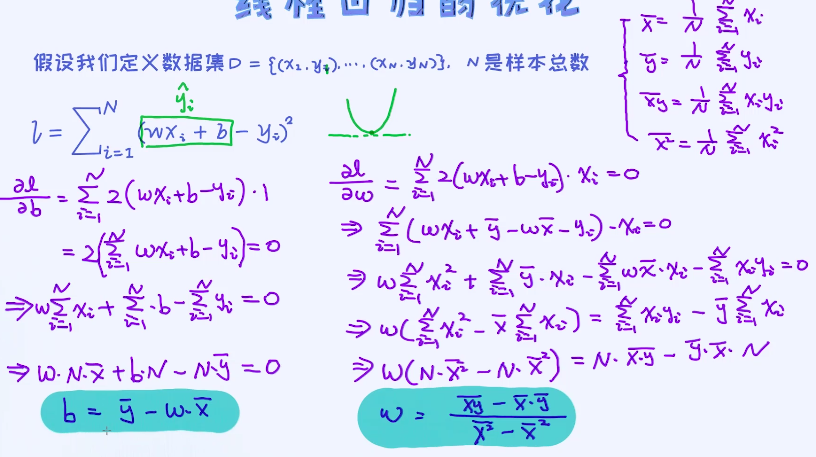 线性回归的优化
假设我们定义数据集D = {(x₁,y₁),...,(x_N,y_N)}, N是样本总数
x̄ = 1/N ∑_{i=1}^N xᵢ
ȳ = 1/N ∑_{i=1}^N yᵢ
x̅y̅ = 1/N ∑_{i=1}^N xᵢyᵢ
x̅²̅ = 1/N ∑_{i=1}^N xᵢ²
ŷᵢ
l = ∑_{i=1}^N (wxᵢ + b - yᵢ)²
∂l/∂b = ∑_{i=1}^N 2(wxᵢ+b-yᵢ)·1
= 2(∑_{i=1}^N wxᵢ+b-yᵢ)=0
⇒ w∑_{i=1}^N xᵢ + ∑_{i=1}^N·b - ∑_{i=1}^N yᵢ = 0
⇒ w·N·x̄ + b·N - N·ȳ = 0
b = ȳ - w·x̄
∂l/∂w = ∑_{i=1}^N 2(wxᵢ+b-yᵢ)·xᵢ=0
⇒ ∑_{i=1}^N (wxᵢ + ȳ - wx̄ - yᵢ)·xᵢ=0
⇒ w∑_{i=1}^N xᵢ² + ∑_{i=1}^N ȳ·xᵢ - ∑_{i=1}^N wx̄·xᵢ - ∑_{i=1}^N xᵢyᵢ = 0
⇒ w(∑_{i=1}^N xᵢ² - x̄∑_{i=1}^N xᵢ) = ∑_{i=1}^N xᵢyᵢ - ȳ∑_{i=1}^N xᵢ
⇒ w(N·x̅²̅ - N·x̄²) = N·x̅y̅ - ȳ·x̄·N
w = (x̅y̅ - x̄·ȳ)/(x̅²̅ - x̄²)